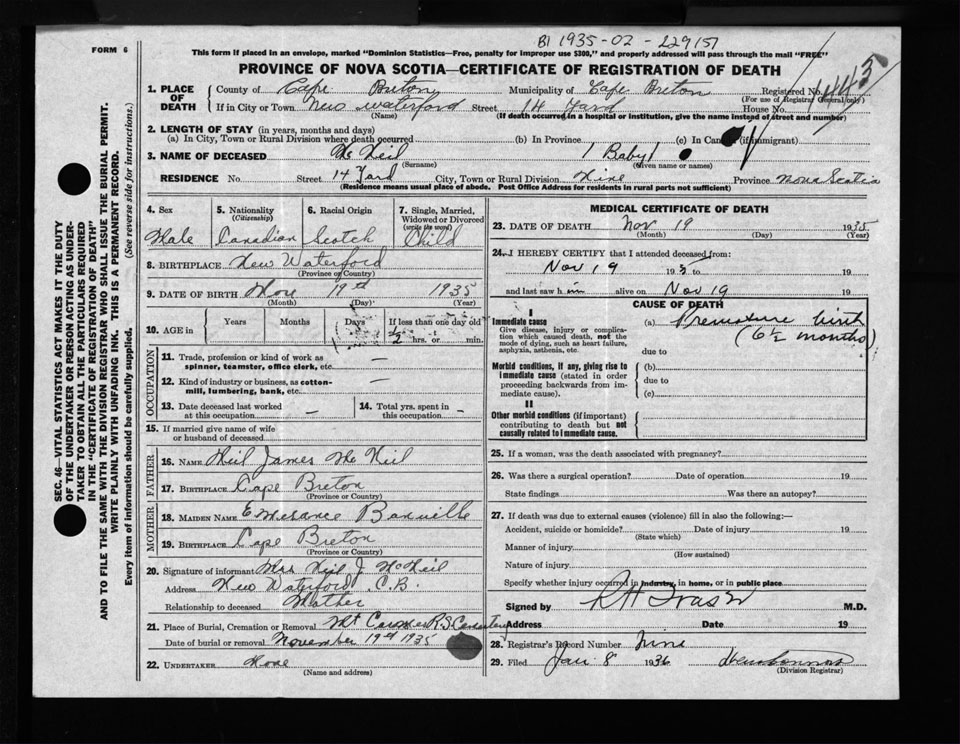 FORM 6
BI 1935-02-229151
This form if placed in an envelope, marked "Dominion Statistics—Free, penalty for improper use $300," and properly addressed will pass through the mail "FREE"
PROVINCE OF NOVA SCOTIA—CERTIFICATE OF REGISTRATION OF DEATH
1. PLACE OF DEATH
County of Cape Breton Municipality of Cape Breton Registered No. 443
(For use of Registrar General only)
If in City or Town New Waterford Street 14 Yard House No.
(Name) (If death occurred in a hospital or institution, give the name instead of street and number)
2. LENGTH OF STAY (in years, months and days)
(a) In City, Town or Rural Division where death occurred (b) In Province (c) In Canada (if immigrant)
3. NAME OF DECEASED Mc Neil (Baby)
(Surname) (Given name or names)
RESIDENCE No. Street 14 Yard City, Town or Rural Division Nine Province Nova Scotia
(Residence means usual place of abode. Post Office Address for residents in rural parts not sufficient)
4. Sex
Male
5. Nationality
(Citizenship)
Canadian
6. Racial Origin
Scotch
7. Single, Married, Widowed or Divorced
(write the word)
Child
8. BIRTHPLACE New Waterford
(Province or Country)
9. DATE OF BIRTH Nov 19th 1935
(Month) (Day) (Year)
10. AGE in
Years
Months
Days
If less than one day old
1/2 hrs. or min.
OCCUPATION
11. Trade, profession or kind of work as spinner, teamster, office clerk, etc. —
12. Kind of industry or business, as cotton-mill, lumbering, bank, etc. —
13. Date deceased last worked at this occupation —
14. Total yrs. spent in this occupation —
15. If married give name of wife or husband of deceased
FATHER
16. NAME Neil James Mc Neil
17. BIRTHPLACE Cape Breton
(Province or Country)
MOTHER
18. MAIDEN NAME
19. BIRTHPLACE Cape Breton
(Province or Country)
20. Signature of informant Mrs Neil J. McNeil
Address New Waterford C.B.
Relationship to deceased Mother
21. Place of Burial, Cremation or Removal Mt Carmel Cemetery
Date of burial or removal November 19th 1935
22. UNDERTAKER None
(Name and address)
MEDICAL CERTIFICATE OF DEATH
23. DATE OF DEATH Nov 19 1935
(Month) (Day) (Year)
24. I HEREBY CERTIFY that I attended deceased from:
Nov 19 193 5 to 19
and last saw him alive on Nov 19 19
CAUSE OF DEATH
I
Immediate cause
Give disease, injury or complication which caused death, not the mode of dying, such as heart failure, asphyxia, asthenia, etc.
(a) Premature birth
(6½ months)
due to
Morbid conditions, if any, giving rise to immediate cause (stated in order proceeding backwards from immediate cause).
(b)
due to
(c)
II
Other morbid conditions (if important) contributing to death but not causally related to immediate cause.
25. If a woman, was the death associated with pregnancy?
26. Was there a surgical operation? Date of operation 19
State findings Was there an autopsy?
27. If death was due to external causes (violence) fill in also the following:—
Accident, suicide or homicide? Date of injury 19
(State which)
Manner of injury
(How sustained)
Nature of injury
Specify whether injury occurred in industry, in home, or in public place
Signed by M.D.
Address Date 19
28. Registrar's Record Number Nine
29. Filed Jan 8 1936
(Division Registrar)
SEC. 46—VITAL STATISTICS ACT MAKES IT THE DUTY
OF THE UNDERTAKER OR PERSON ACTING AS UNDER-
TAKER TO OBTAIN ALL THE PARTICULARS REQUIRED
IN THE "CERTIFICATE OF REGISTRATION OF DEATH"
AND TO FILE THE SAME WITH THE DIVISION REGISTRAR WHO SHALL ISSUE THE BURIAL PERMIT.
WRITE PLAINLY WITH UNFADING INK. THIS IS A PERMANENT RECORD.
Every item of information should be carefully supplied. (See reverse side for instructions.)